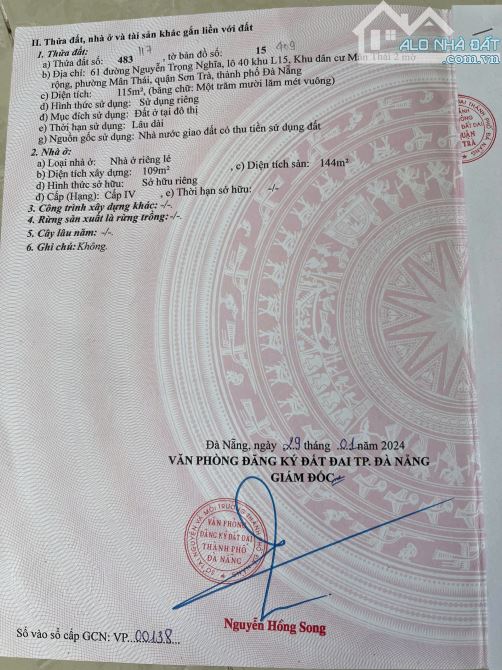 ALO NHÀ ĐẤT
II. Thửa đất, nhà ở và tài sản khác gắn liền với đất
1. Thửa đất: 117 409
a) Thửa đất số: 483 , tờ bản đồ số: 15
b) Địa chỉ: 61 đường Nguyễn Trọng Nghĩa, lô 40 khu L15, Khu dân cư Mân Thái 2 mở
rộng, phường Mân Thái, quận Sơn Trà, thành phố Đà Nẵng
c) Diện tích: 115m², (bằng chữ: Một trăm mười lăm mét vuông)
d) Hình thức sử dụng: Sử dụng riêng
đ) Mục đích sử dụng: Đất ở tại đô thị
e) Thời hạn sử dụng: Lâu dài
g) Nguồn gốc sử dụng: Nhà nước giao đất có thu tiền sử dụng đất
2. Nhà ở:
a) Loại nhà ở: Nhà ở riêng lẻ
b) Diện tích xây dựng: 109m² , c) Diện tích sàn: 144m²
d) Hình thức sở hữu: Sở hữu riêng
đ) Cấp (Hạng): Cấp IV , e) Thời hạn sở hữu: -/-
3. Công trình xây dựng khác: -/-.
4. Rừng sản xuất là rừng trồng:-/-.
5. Cây lâu năm: -/-.
6. Ghi chú:Không.
Đà Nẵng, ngày 29 tháng 01 năm 2024
VĂN PHÒNG ĐĂNG KÝ ĐẤT ĐAI TP. ĐÀ NẴNG
GIÁM ĐỐC
VĂN PHÒNG
ĐĂNG KÝ ĐẤT ĐAI
THÀNH PHỐ
ĐÀ NẴNG
Nguyễn Hồng Song
Số vào sổ cấp GCN: VP...00138